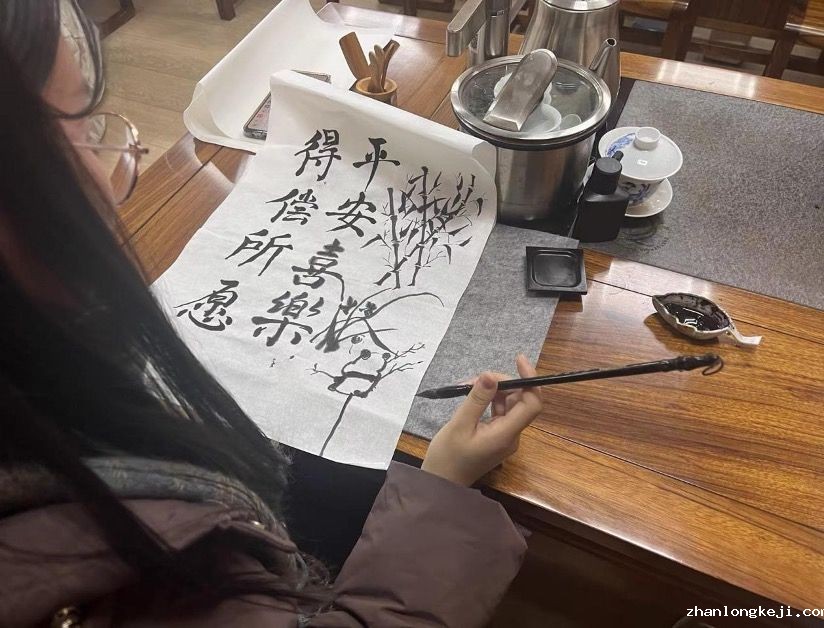 平安喜樂
得偿所愿
zhanlongkeji.com